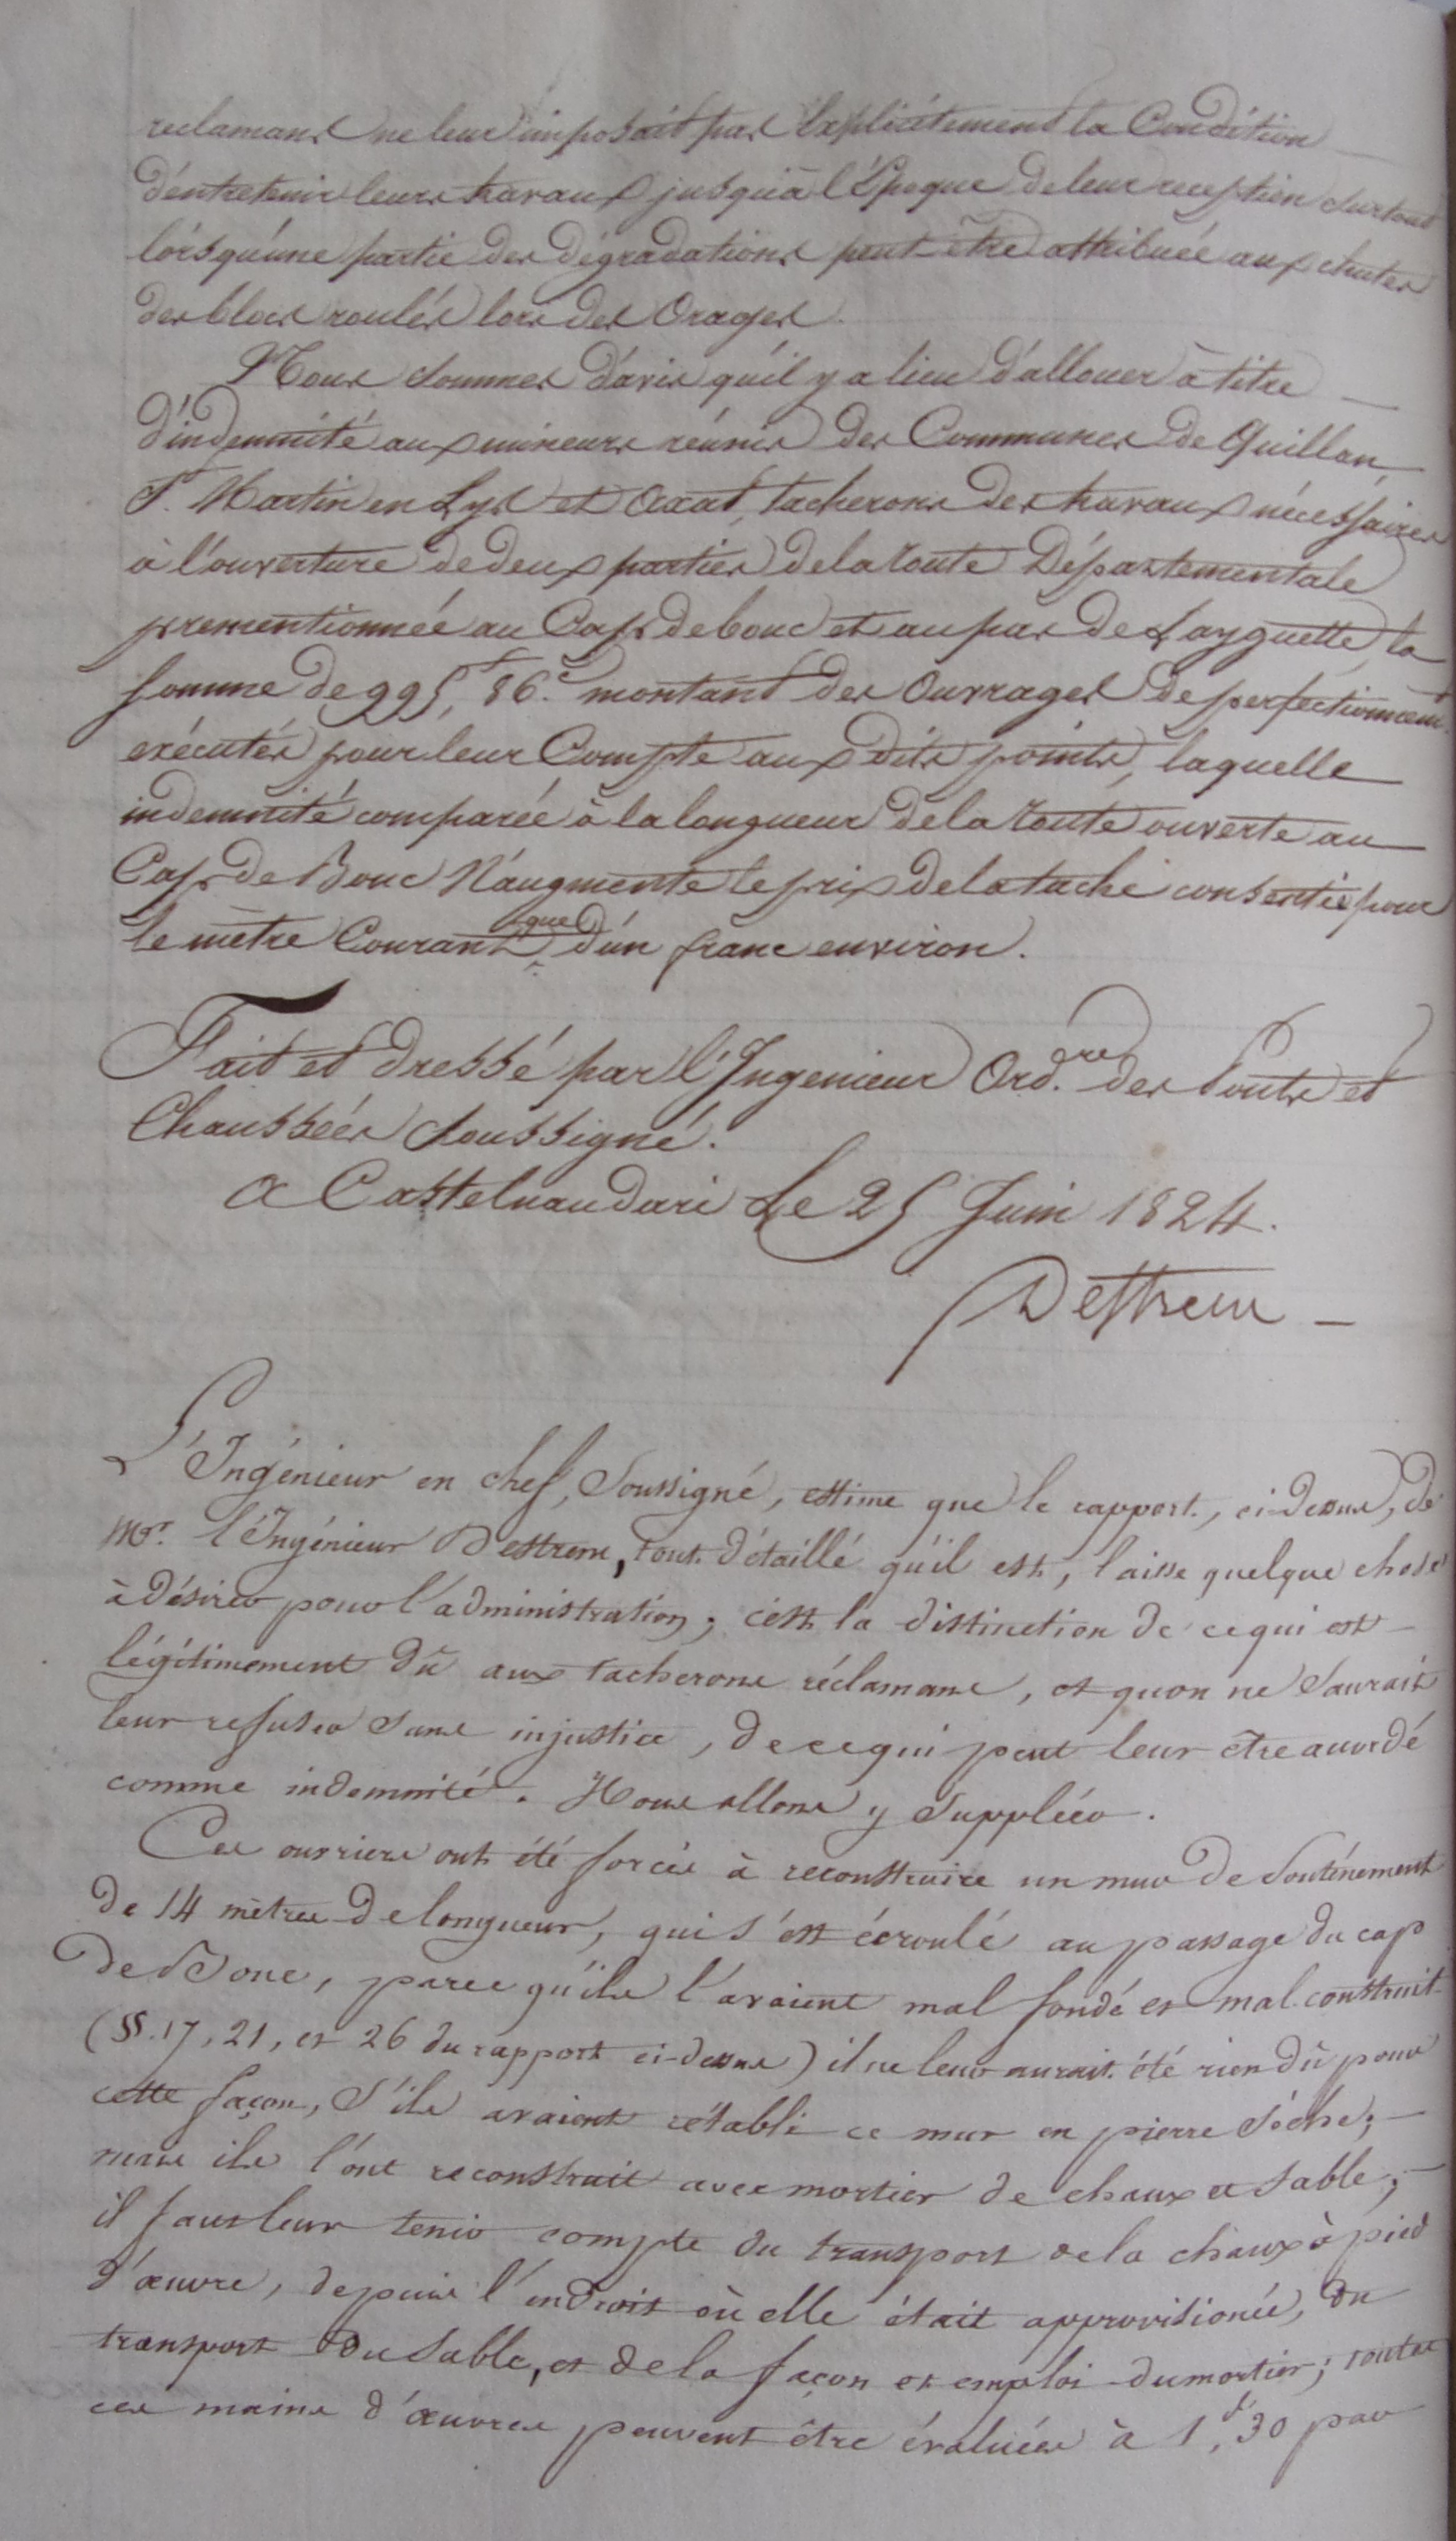 reclamans ne leur imposait pas explicitement la Condition
d'entretenir leurs travaux jusqu'à l'Epoque de leur reception surtout
lorsqu'une partie des dégradations peut-être attribuée aux chutes
des blocs roulés lors des Orages.
Nous sommes d'avis qu'il y a lieu d'allouer à titre
d'indemnité aux mineurs réunis des Communes de Quillan,
St. Martin en Lys et Axat, tacherons des travaux nécessaires
à l'ouverture de deux parties de la route Départementale
prementionnée au Cap de bouc et au pas de Layguette, la
somme de 995f, 86c. montant des Ouvrages de perfectionnemt.
exécutés pour leur Compte aux dits points, laquelle
indemnité comparée à la longueur de la route ouverte au
Cap de Bouc N'augmente le prix de la tache consentie pour
le mètre Courant que d'un franc environ.
Fait et dressé par l'Ingenieur Ord.re des Ponts et
Chaussées soussigné.
A Castelnaudari Le 25 Juin 1824.
Destrem
L'Ingénieur en chef, Soussigné, estime que le rapport, ci-dessus, de
Mr. l'Ingénieur Destrem, tout détaillé qu'il est, laisse quelque chose
à désirer pour l'administration; c'est la distinction de ce qui est
légitimement dû aux tacherons réclamans, et qu'on ne Saurait
leur refuser Sans injustice, de ce qui peut leur être accordé
comme indemnité. Nous allons y Suppléer.
Ces ouvriers ont été forcés à reconstruire un mur de Soutènement
de 14 mètres de longueur, qui s'est écroulé au passage du cap
de Bouc, parce qu'ils l'avaient mal fondé et mal construit
(SS. 17, 21, et 26 du rapport ci-dessus) il ne leur aurait été rien dû pour
cette façon, S'ils avaient rétabli ce mur en pierre Sèche;
mais ils l'ont reconstruit avec mortier de chaux et Sable;
il faut leur tenir compte du transport de la chaux à pied
d'œuvre, depuis l'endroit où elle était approvisionée, du
transport du Sable, et de la façon et emploi du mortier; toutes
ces mains d'œuvres peuvent être évaluées à 1f,30 par